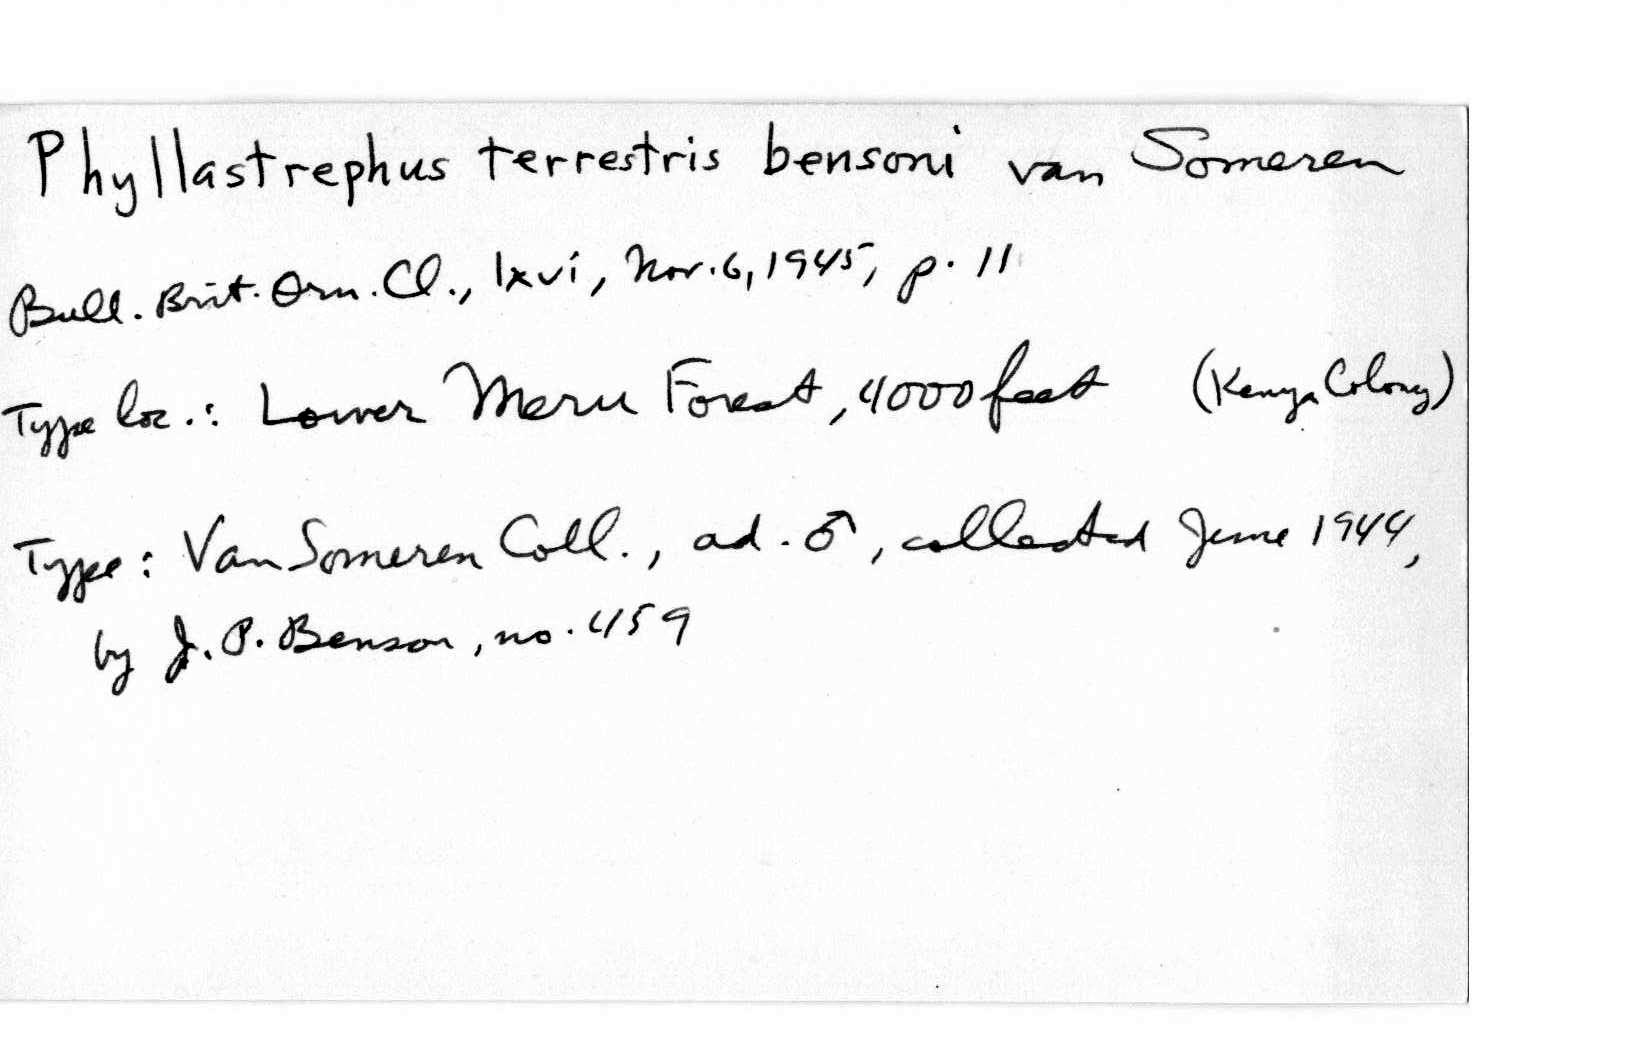 Phyllastrephus terrestris bensoni van Someren
Bull. Brit. Orn. Cl., lxvi, Nov. 6, 1945, p. 11
Type loc.: Lower Meru Forest, 4000 feet (Kenya Colony)
Type: Van Someren Coll., ad. ♂, collected June 1944,
by J. P. Benson, no. 459